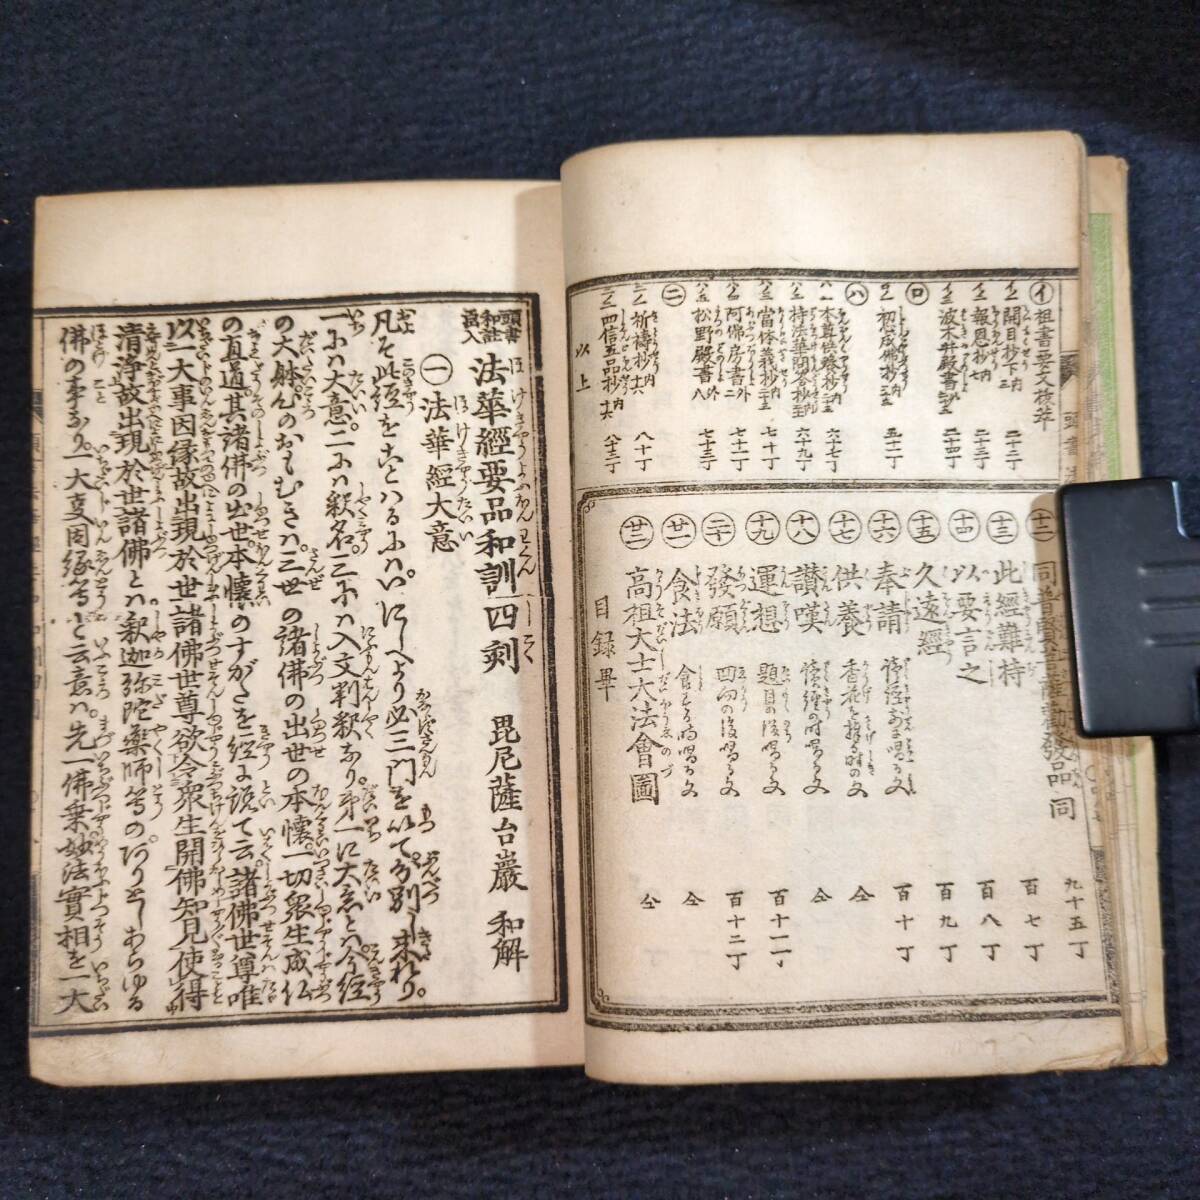 イ 祖書要文抜萃
開目抄下 内三 二十二丁
報恩抄 内七 二十三丁
波木井殿書 二十四丁
ロ
初心成佛抄 五十一丁
ハ
本尊供養抄 内 六十七丁
持法華問答抄 六十九丁
當体義抄 内 七十丁
阿佛房書 外二 七十一丁
松野殿書 外八 七十三丁
ニ
祈祷抄 内 八十丁
四信五品抄 内十六 八十三丁
以上
同普賢菩薩勸發品 同 九十五丁
十三 此經難持 百七丁
十四 以要言之 百八丁
十五 久遠經 百九丁
十六 奉請 百十丁
十七 供養 香花を捧る時の文 仝
十八 讃嘆 讀經の時唱る文 仝
十九 運想 題目の後唱る文 百十一丁
二十 發願 回向の後唱る文 百十二丁
廿一 食法 食する時唱る文 仝
廿二 高祖大士大法會圖
目録畢
頭書和註畫入 法華經要品和訓四刻 毘尼薩台巖 和解
一 法華經大意
凡そ此經をことハるにハいにしへより必三門を以て分別し来れり。
一にハ大意。二にハ釈名。三にハ入文判釈なり。第一に大意とハ今經
の大躰のおもむきハ。三世の諸佛の出世の本懐。一切衆生成仏
の直道。其諸佛の出世本懐のすがたを經に説て云。諸佛世尊唯
以一大事因縁故出現於世諸佛世尊欲令衆生開佛知見使得
清浄故出現於世諸佛とハ釈迦弥陀薬師等の。ありとしあらゆる
佛の事なり。一大事因縁等と云意ハ。先一佛乗妙法實相を一大